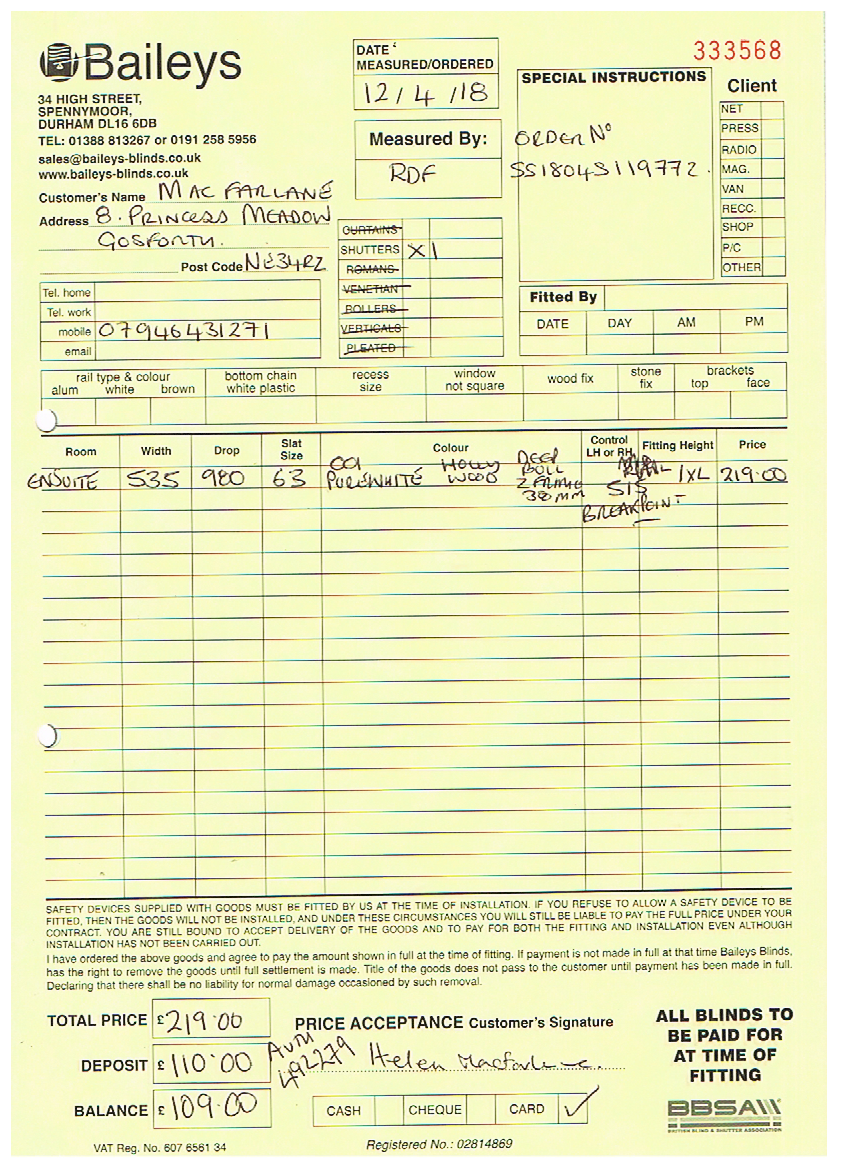 Baileys
34 HIGH STREET,
SPENNYMOOR,
DURHAM DL16 6DB
TEL: 01388 813267 or 0191 258 5956
sales@baileys-blinds.co.uk
www.baileys-blinds.co.uk
DATE
MEASURED/ORDERED
12/4/18
Measured By:
RDF
333568
SPECIAL INSTRUCTIONS
ORDER Nº
SS18043119772.
Client
NET
PRESS
RADIO
MAG.
VAN
RECC.
SHOP
P/C
OTHER
Customer's Name MACFARLANE
Address 8. PRINCESS MEADOW
GOSFORTH.
Post Code NE34RZ
Tel. home
Tel. work
mobile 07946431271
email
CURTAINS
SHUTTERS X 1
ROMANS
VENETIAN
ROLLERS
VERTICALS
PLEATED
Fitted By
DATE DAY AM PM
rail type & colour
alum white brown
bottom chain
white plastic
recess
size
window
not square
wood fix
stone
fix
brackets
top face
Room Width Drop Slat Size Colour Control LH or RH Fitting Height Price
ENSUITE 535 980 63 001 PUREWHITE HOLLYWOOD DEEP BULL Z FRAME 38MM RAIL 1XL 219.00
BREAKPOINT
SAFETY DEVICES SUPPLIED WITH GOODS MUST BE FITTED BY US AT THE TIME OF INSTALLATION. IF YOU REFUSE TO ALLOW A SAFETY DEVICE TO BE
FITTED, THEN THE GOODS WILL NOT BE INSTALLED, AND UNDER THESE CIRCUMSTANCES YOU WILL STILL BE LIABLE TO PAY THE FULL PRICE UNDER YOUR
CONTRACT. YOU ARE STILL BOUND TO ACCEPT DELIVERY OF THE GOODS AND TO PAY FOR BOTH THE FITTING AND INSTALLATION EVEN ALTHOUGH
INSTALLATION HAS NOT BEEN CARRIED OUT.
I have ordered the above goods and agree to pay the amount shown in full at the time of fitting. If payment is not made in full at that time Baileys Blinds,
has the right to remove the goods until full settlement is made. Title of the goods does not pass to the customer until payment has been made in full.
Declaring that there shall be no liability for normal damage occasioned by such removal.
TOTAL PRICE £219.00
DEPOSIT £110.00
BALANCE £109.00
PRICE ACCEPTANCE Customer's Signature
AUTH
492279
Helen Macfarlane
CASH CHEQUE CARD ✓
ALL BLINDS TO
BE PAID FOR
AT TIME OF
FITTING
BBSA
BRITISH BLIND & SHUTTER ASSOCIATION
VAT Reg. No. 607 6561 34
Registered No.: 02814869